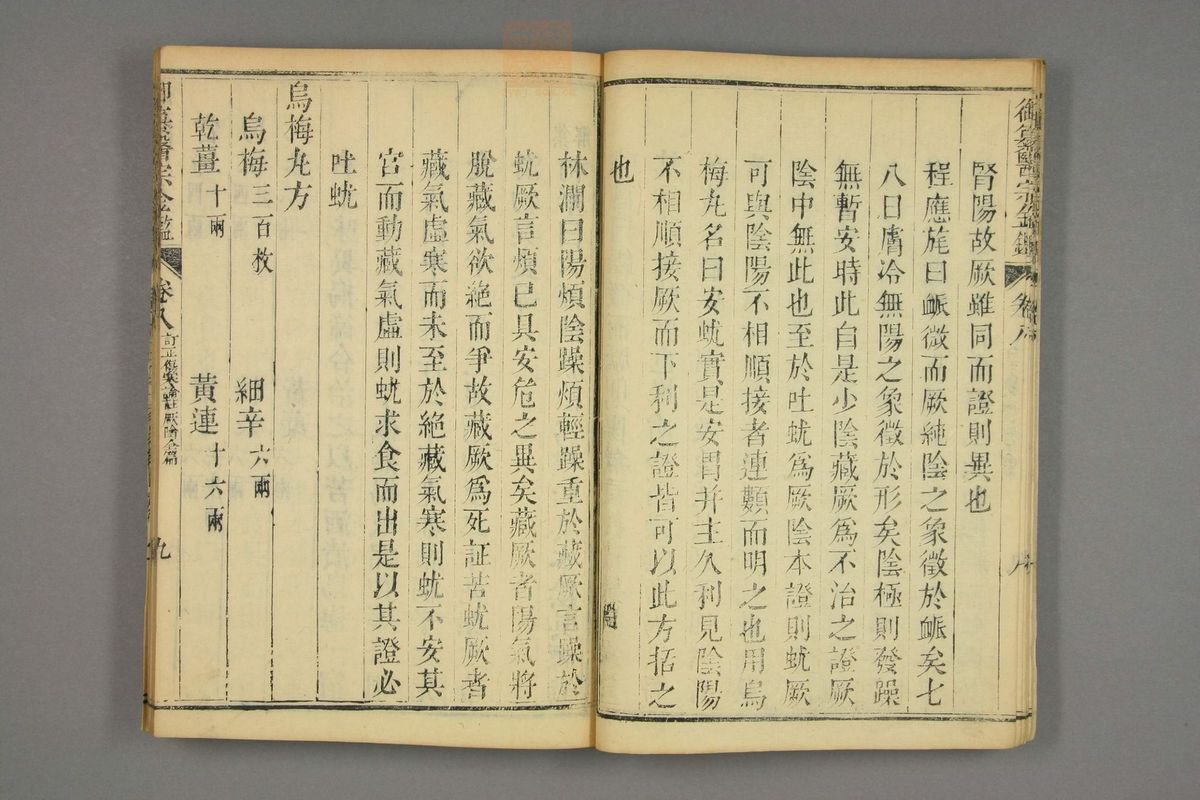 御纂醫宗金鑑
卷八
腎陽故厥雖同而證則異也
程應旄曰脈微而厥純陰之象徵於脈矣七
八日膚冷無陽之象徵於形矣陰極則發躁
無暫安時此自是少陰藏厥爲不治之證厥
陰中無此也至於吐蚘爲厥陰本證則蚘厥
可與陰陽不相順接者連類而明之也用烏
梅丸名曰安蚘實是安胃并主久利見陰陽
不相順接厥而下利之證皆可以此方括之
也
林瀾曰陽煩陰躁煩輕躁重於藏厥言躁於
蚘厥言煩已具安危之異矣藏厥者陽氣將
脫藏氣欲絶而爭故藏厥爲死証苦蚘厥者
藏氣虛寒而未至於絶藏氣寒則蚘不安其
宮而動藏氣虛則蚘求食而出是以其證必
吐蚘
烏梅丸方
烏梅三百枚 細辛六兩
乾薑十兩 黃連十六兩
御纂醫宗金鑑
卷八
訂正傷寒論註厥陰全篇
九